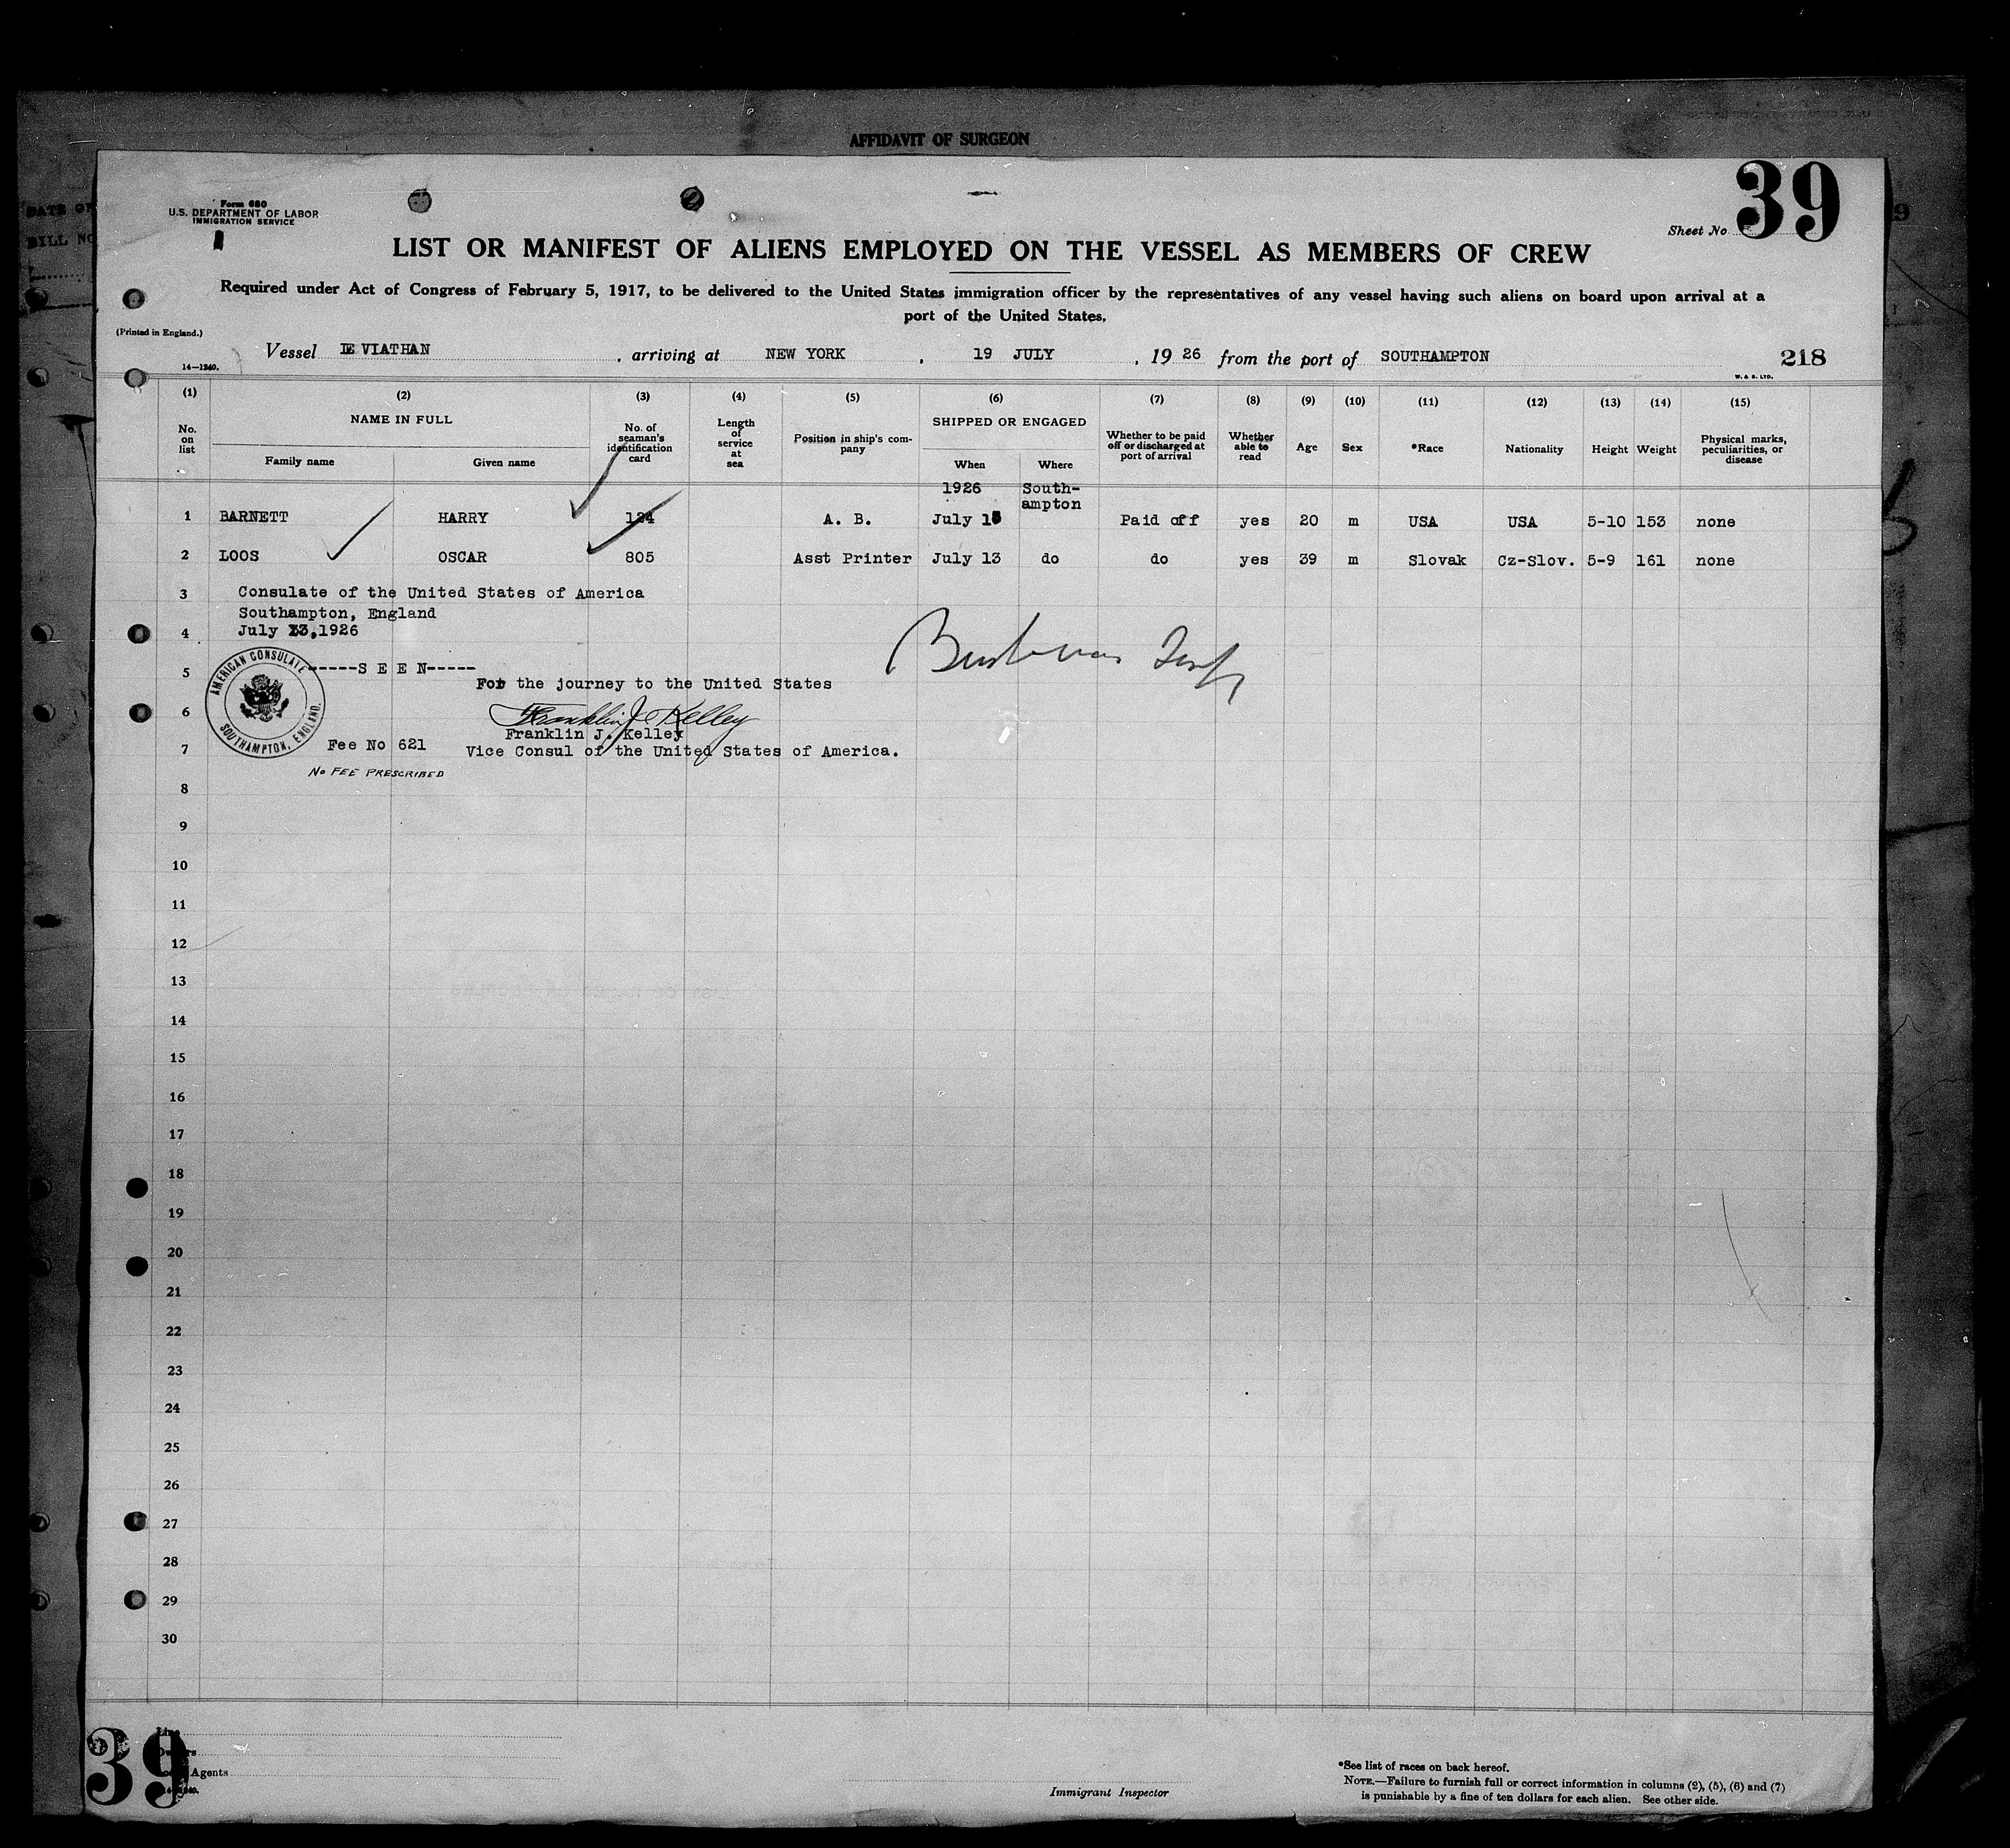 AFFIDAVIT OF SURGEON
DATE OF
BILL NO
Form 680
U.S. DEPARTMENT OF LABOR
IMMIGRATION SERVICE
Sheet No 39
LIST OR MANIFEST OF ALIENS EMPLOYED ON THE VESSEL AS MEMBERS OF CREW
Required under Act of Congress of February 5, 1917, to be delivered to the United States immigration officer by the representatives of any vessel having such aliens on board upon arrival at a
port of the United States.
(Printed in England.)
Vessel LEVIATHAN, arriving at NEW YORK, 19 JULY, 1926 from the port of SOUTHAMPTON 218
14—1240. W. & S. LTD.
(1) (2) (3) (4) (5) (6) (7) (8) (9) (10) (11) (12) (13) (14) (15)
No. on list NAME IN FULL Family name Given name No. of seaman's identification card Length of service at sea Position in ship's com-pany SHIPPED OR ENGAGED When Where Whether to be paid off or discharged at port of arrival Whether able to read Age Sex *Race Nationality Height Weight Physical marks, peculiarities, or disease
1926 South-
ampton
1 BARNETT HARRY 124 A. B. July 15 Paid off yes 20 m USA USA 5-10 153 none
2 LOOS OSCAR 805 Asst Printer July 13 do do yes 39 m Slovak Cz-Slov. 5-9 161 none
3 Consulate of the United States of America
Southampton, England
4 July 13,1926
5 ------S E E N-----
For the journey to the United States
AMERICAN CONSULATE SOUTHAMPTON, ENGLAND.
6 Franklin J Kelley
Franklin J. Kelley
7 Fee No 621 Vice Consul of the United States of America.
No FEE PRESCRIBED
8
9
10
11
12
13
14
15
16
17
18
19
20
21
22
23
24
25
26
27
28
29
30
39
Line
Owners
Local Agents
Immigrant Inspector
*See list of races on back hereof.
NOTE.—Failure to furnish full or correct information in columns (2), (5), (6) and (7)
is punishable by a fine of ten dollars for each alien. See other side.